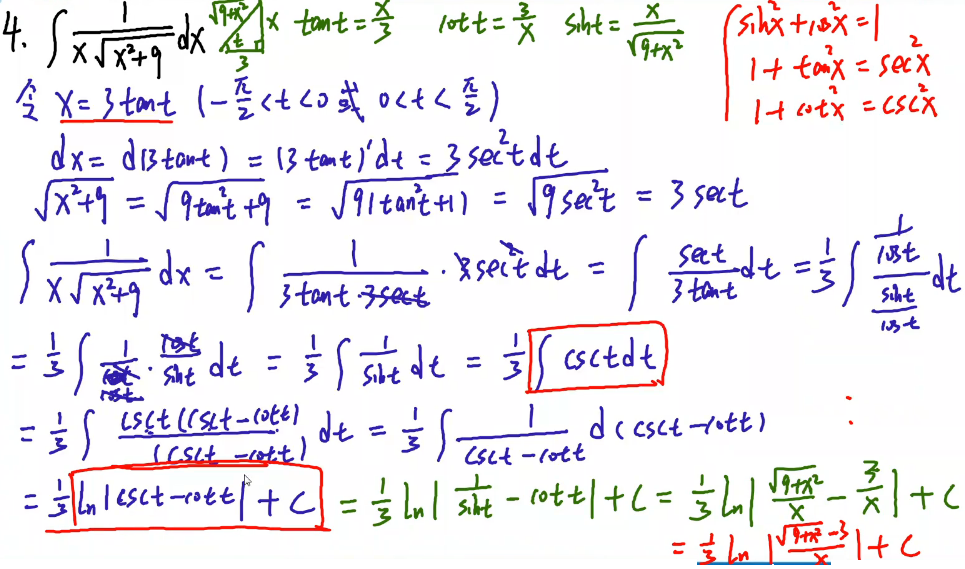 4. ∫ 1/(x√(x²+9)) dx √(9+x²) x t 3 tant = x/3 cott = 3/x sint = x/√(9+x²)
sin²x + cos²x = 1
1 + tan²x = sec²x
1 + cot²x = csc²x
令 x = 3tant (-π/2 < t < 0 或 0 < t < π/2)
dx = d(3tant) = (3tant)'dt = 3sec²t dt
√(x²+9) = √(9tan²t+9) = √(9(tan²t+1)) = √(9sec²t) = 3sect
∫ 1/(x√(x²+9)) dx = ∫ 1/(3tant·3sect) · 3sec²t dt = ∫ sect/(3tant) dt = 1/3 ∫ (1/cost)/(sint/cost) dt
= 1/3 ∫ 1/cost · cost/sint dt = 1/3 ∫ 1/sint dt = 1/3 ∫ csct dt
= 1/3 ∫ csct(csct-cott)/(csct-cott) dt = 1/3 ∫ 1/(csct-cott) d(csct-cott)
= 1/3 ln|csct-cott| + C = 1/3 ln|1/sint - cott| + C = 1/3 ln|√(9+x²)/x - 3/x| + C
= 1/3 ln|(√(9+x²)-3)/x| + C